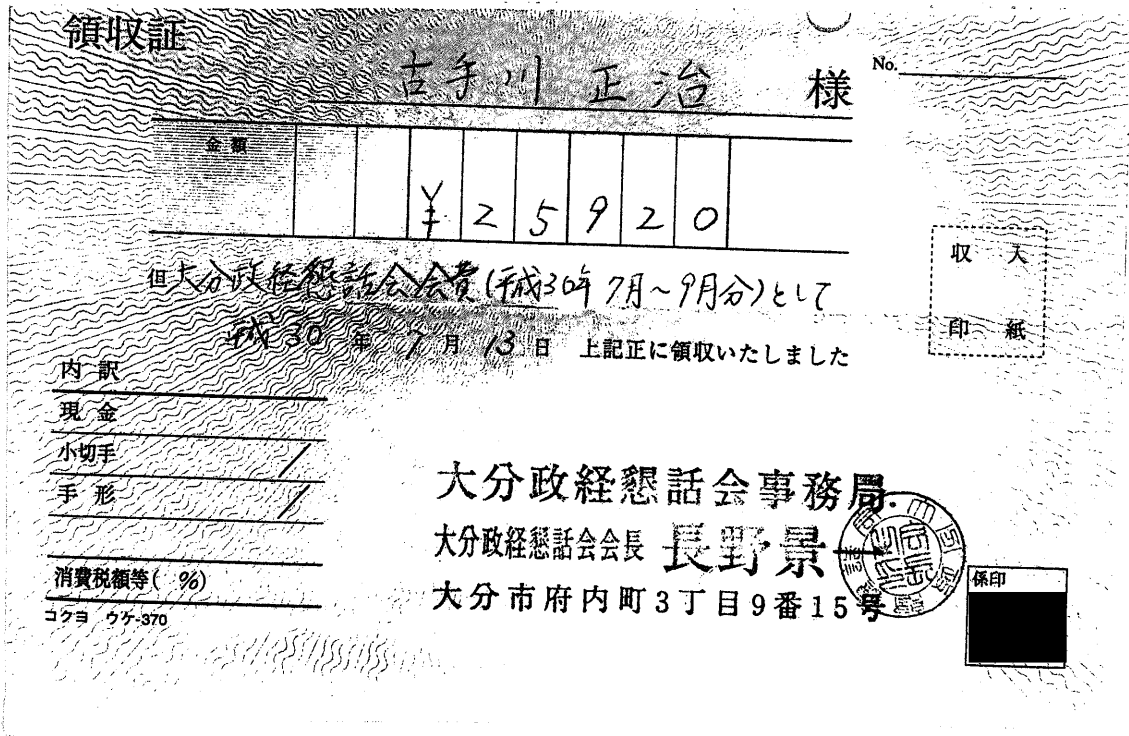 領収証
No.
古手川 正治 様
金額 ¥25920
但 大分政経懇話会会費(平成30年7月~9月分)として
平成30年7月13日 上記正に領収いたしました
収入
印紙
内訳
現金
小切手
手形
消費税額等( %)
コクヨ ウケ-370
大分政経懇話会事務局
大分政経懇話会会長 長野景一
大分市府内町3丁目9番15号
係印